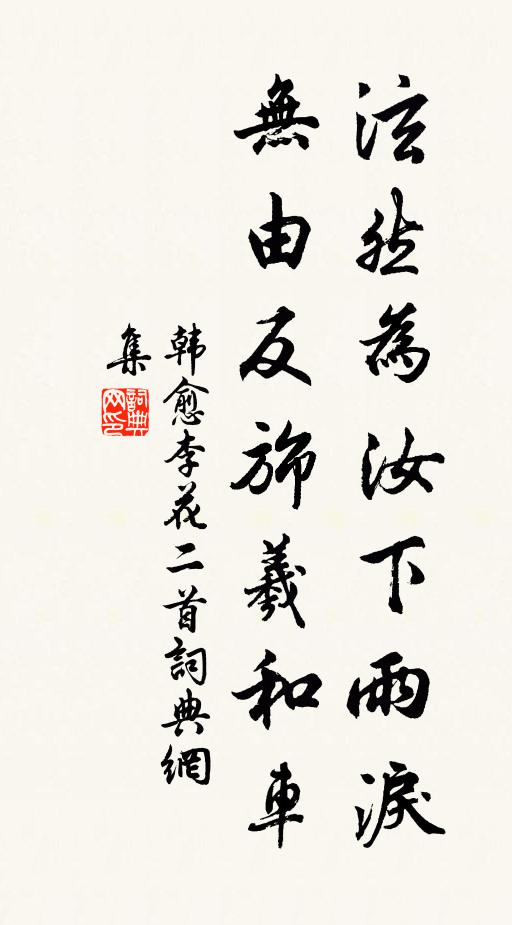 泫然為汝下雨淚
無由反旆羲和車
韩愈李花二首詞典網
集
詞典
网印